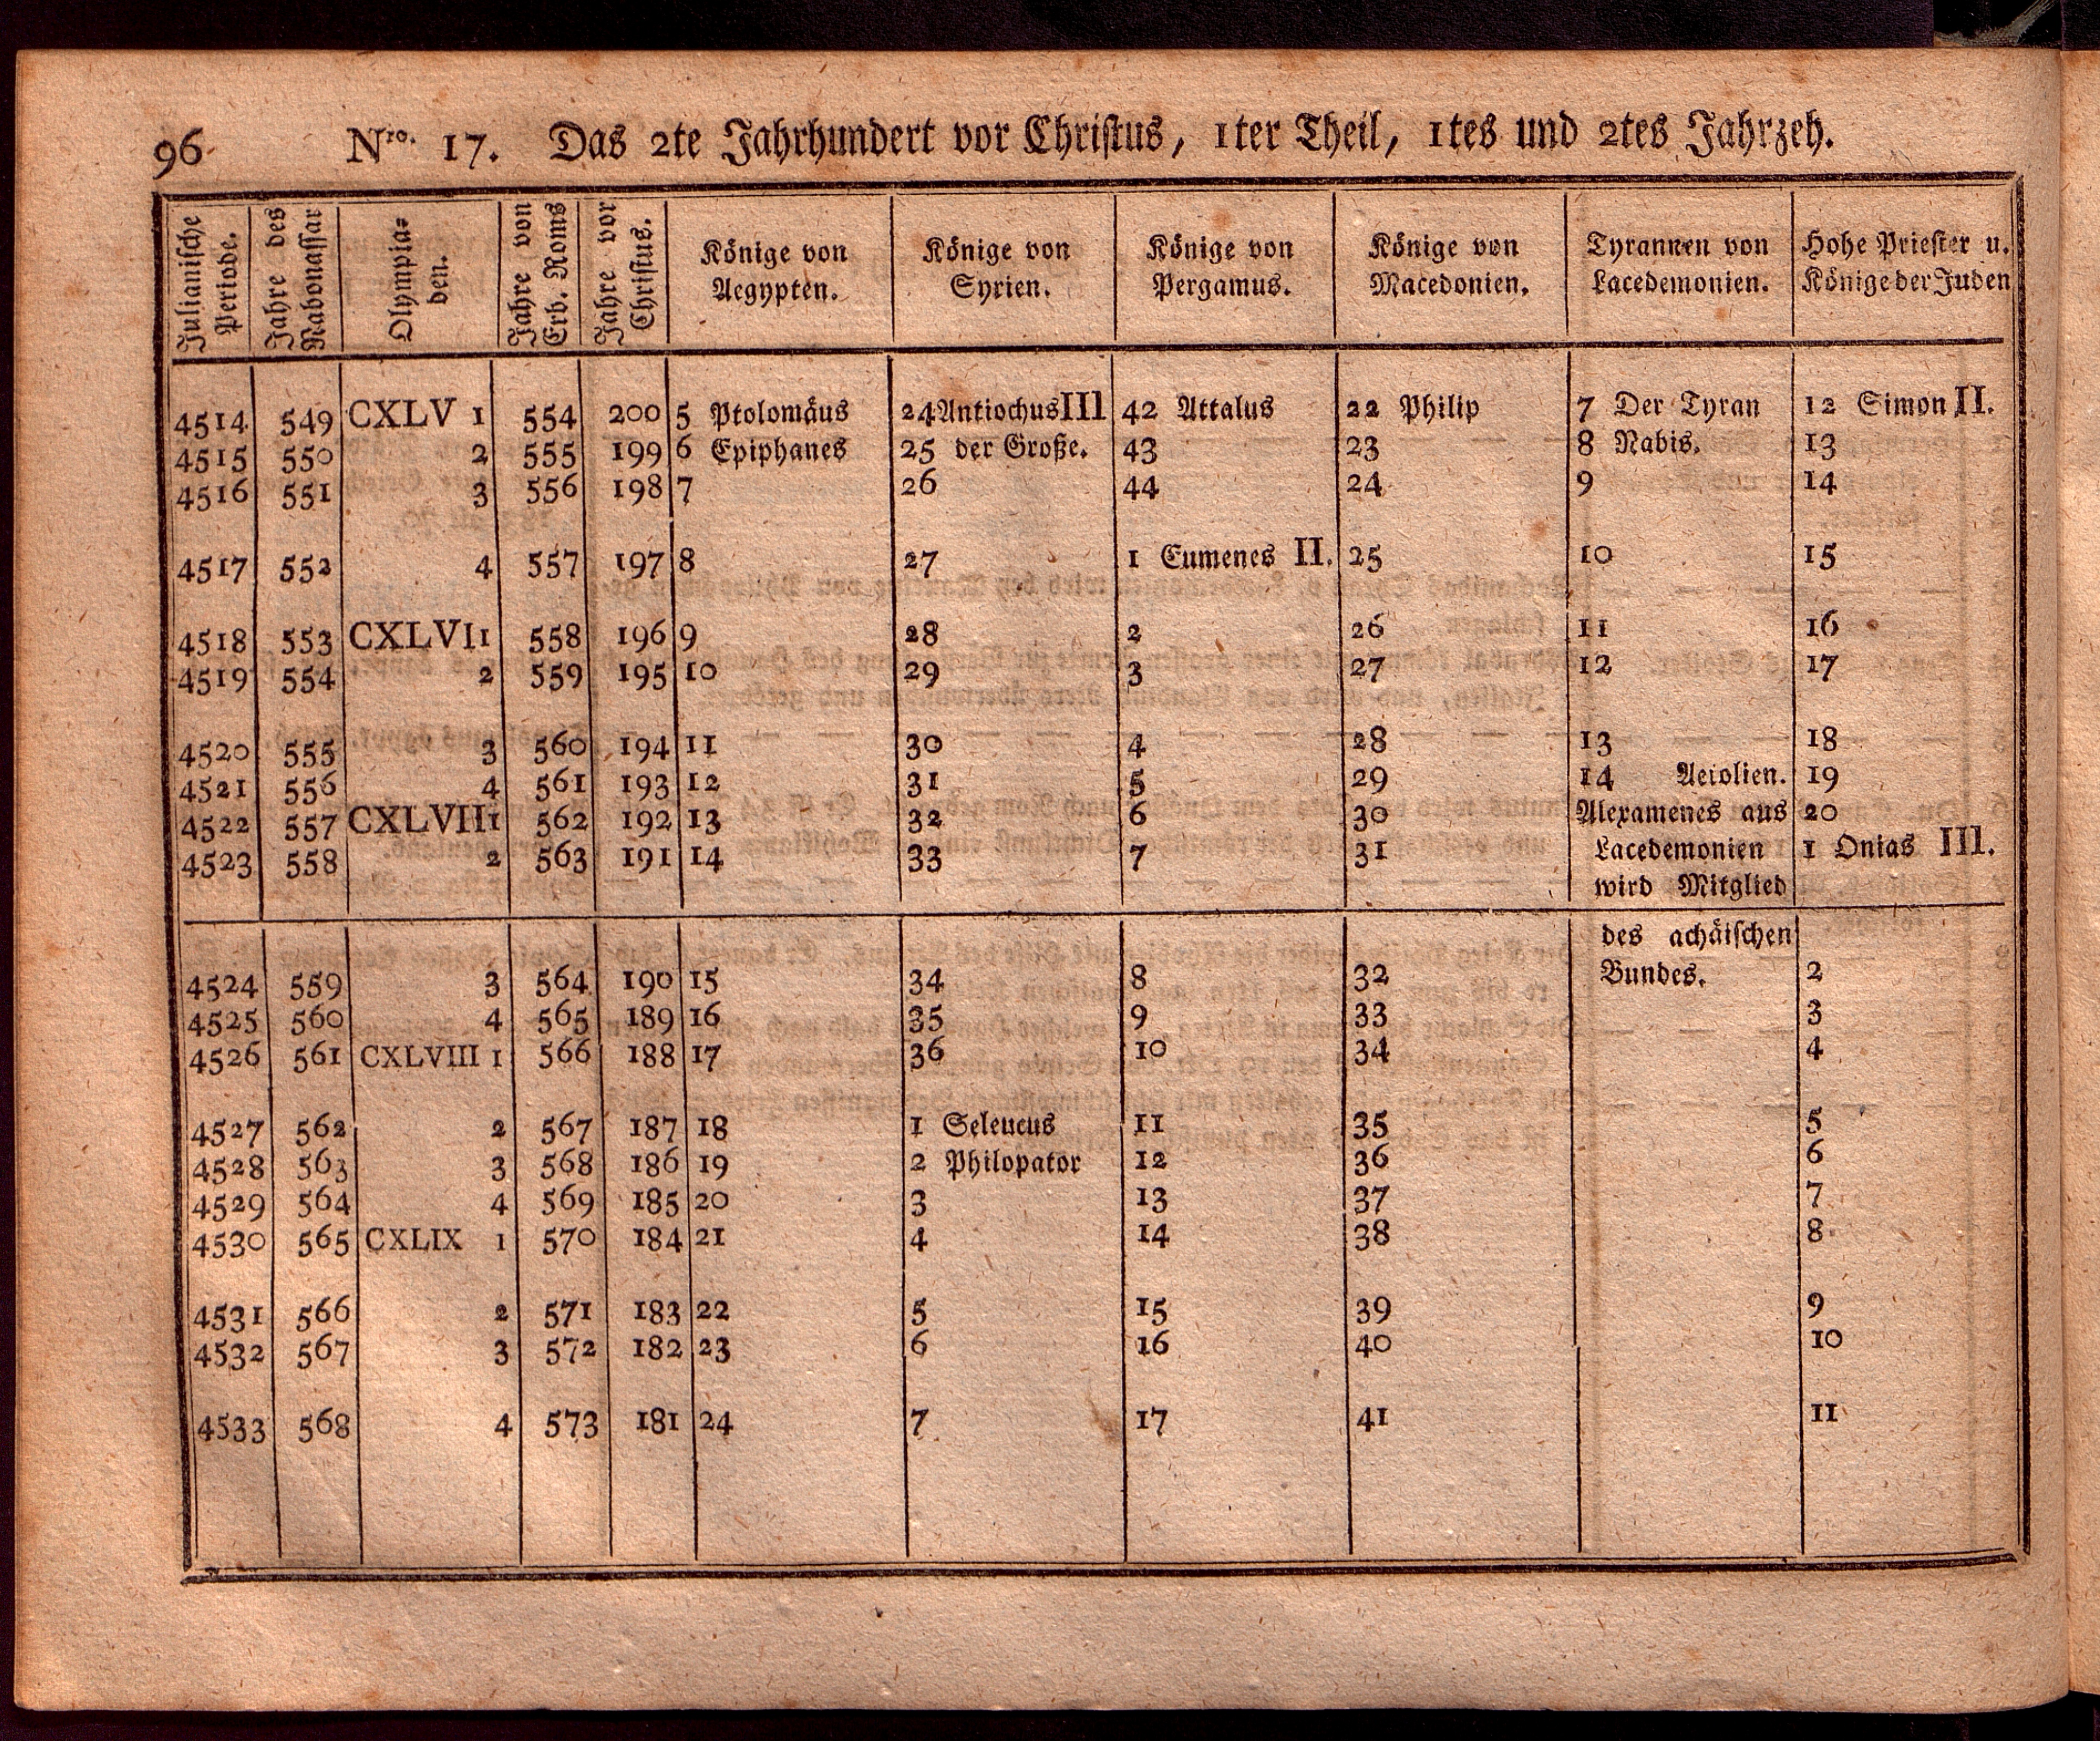 96 Nro. 17. Das 2te Jahrhundert vor Christus, 1ter Theil, 1tes und 2tes Jahrzeh.
Julianische Periode. | Jahre des Nabonassar | Olympia=den. | Jahre von Erb. Roms | Jahre vor Christus. | Könige von Aegypten. | Könige von Syrien. | Könige von Pergamus. | Könige von Macedonien. | Tyrannen von Lacedemonien. | Hohe Priester u. Könige der Juden
4514 549 CXLV 1 554 200 5 Ptolomäus 24 Antiochus III 42 Attalus 22 Philip 7 Der Tyran 12 Simon II.
4515 550 2 555 199 6 Epiphanes 25 der Große. 43 23 8 Nabis. 13
4516 551 3 556 198 7 26 44 24 9 14
4517 552 4 557 197 8 27 1 Eumenes II. 25 10 15
4518 553 CXLVI 1 558 196 9 28 2 26 11 16
4519 554 2 559 195 10 29 3 27 12 17
4520 555 3 560 194 11 30 4 28 13 18
4521 556 4 561 193 12 31 5 29 14 Aetolien. 19
4522 557 CXLVII 1 562 192 13 32 6 30 Alexamenes aus 20
4523 558 2 563 191 14 33 7 31 Lacedemonien 1 Onias III.
wird Mitglied
des achäischen
4524 559 3 564 190 15 34 8 32 Bundes. 2
4525 560 4 565 189 16 35 9 33 3
4526 561 CXLVIII 1 566 188 17 36 10 34 4
4527 562 2 567 187 18 1 Seleucus 11 35 5
4528 563 3 568 186 19 2 Philopator 12 36 6
4529 564 4 569 185 20 3 13 37 7
4530 565 CXLIX 1 570 184 21 4 14 38 8
4531 566 2 571 183 22 5 15 39 9
4532 567 3 572 182 23 6 16 40 10
4533 568 4 573 181 24 7 17 41 11